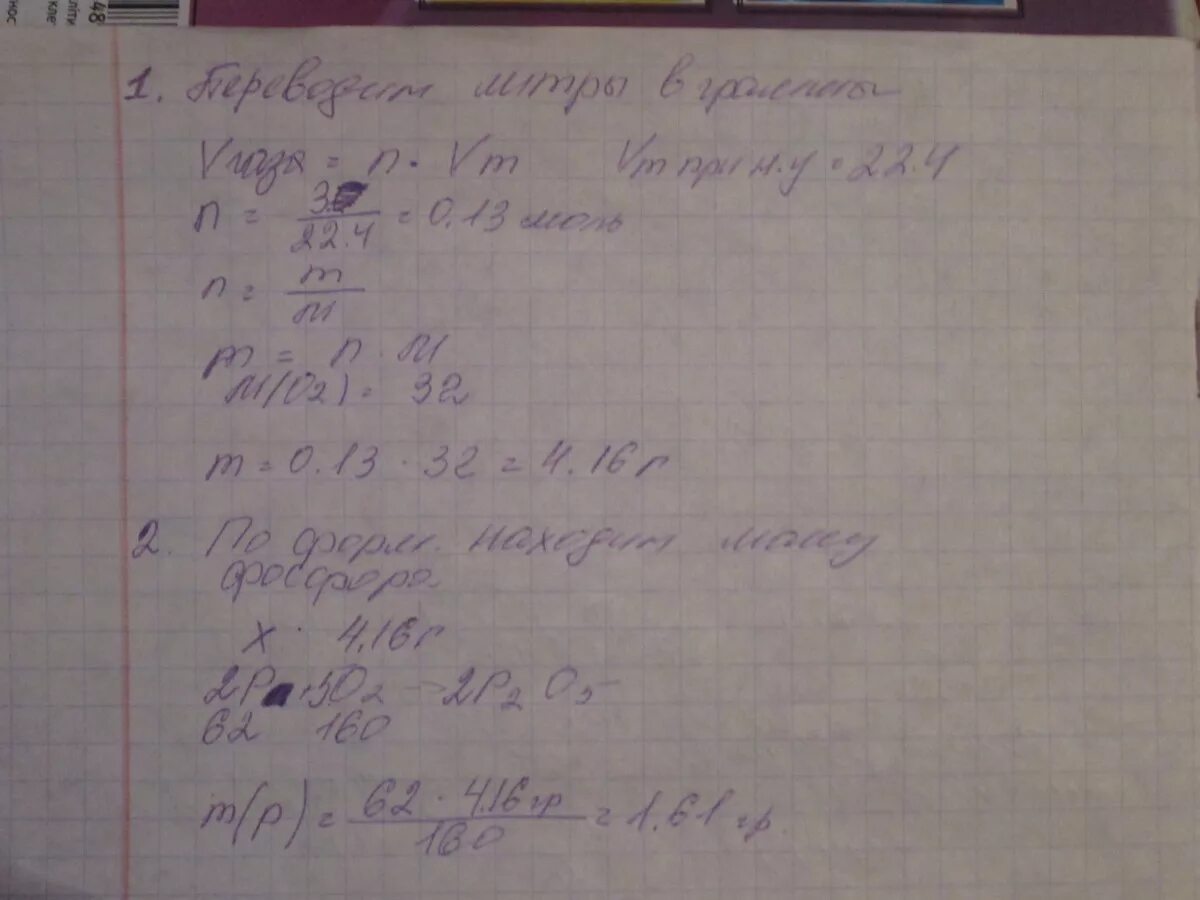 нос
літи
кле
48
1. Переводим литры в граммы
Vгаза = n · Vm Vm при н.у = 22.4
n = 3 / 22.4 = 0.13 моль
n = m / M
m = n · M
M(O2) = 32
m = 0.13 · 32 = 4.16 г
2. По форм. находим массу
фосфора
x · 4.16 г
2P + 5O2 → 2P2O5
62 160
m(p) = 62 · 4.16 гр / 160 = 1.61 гр.